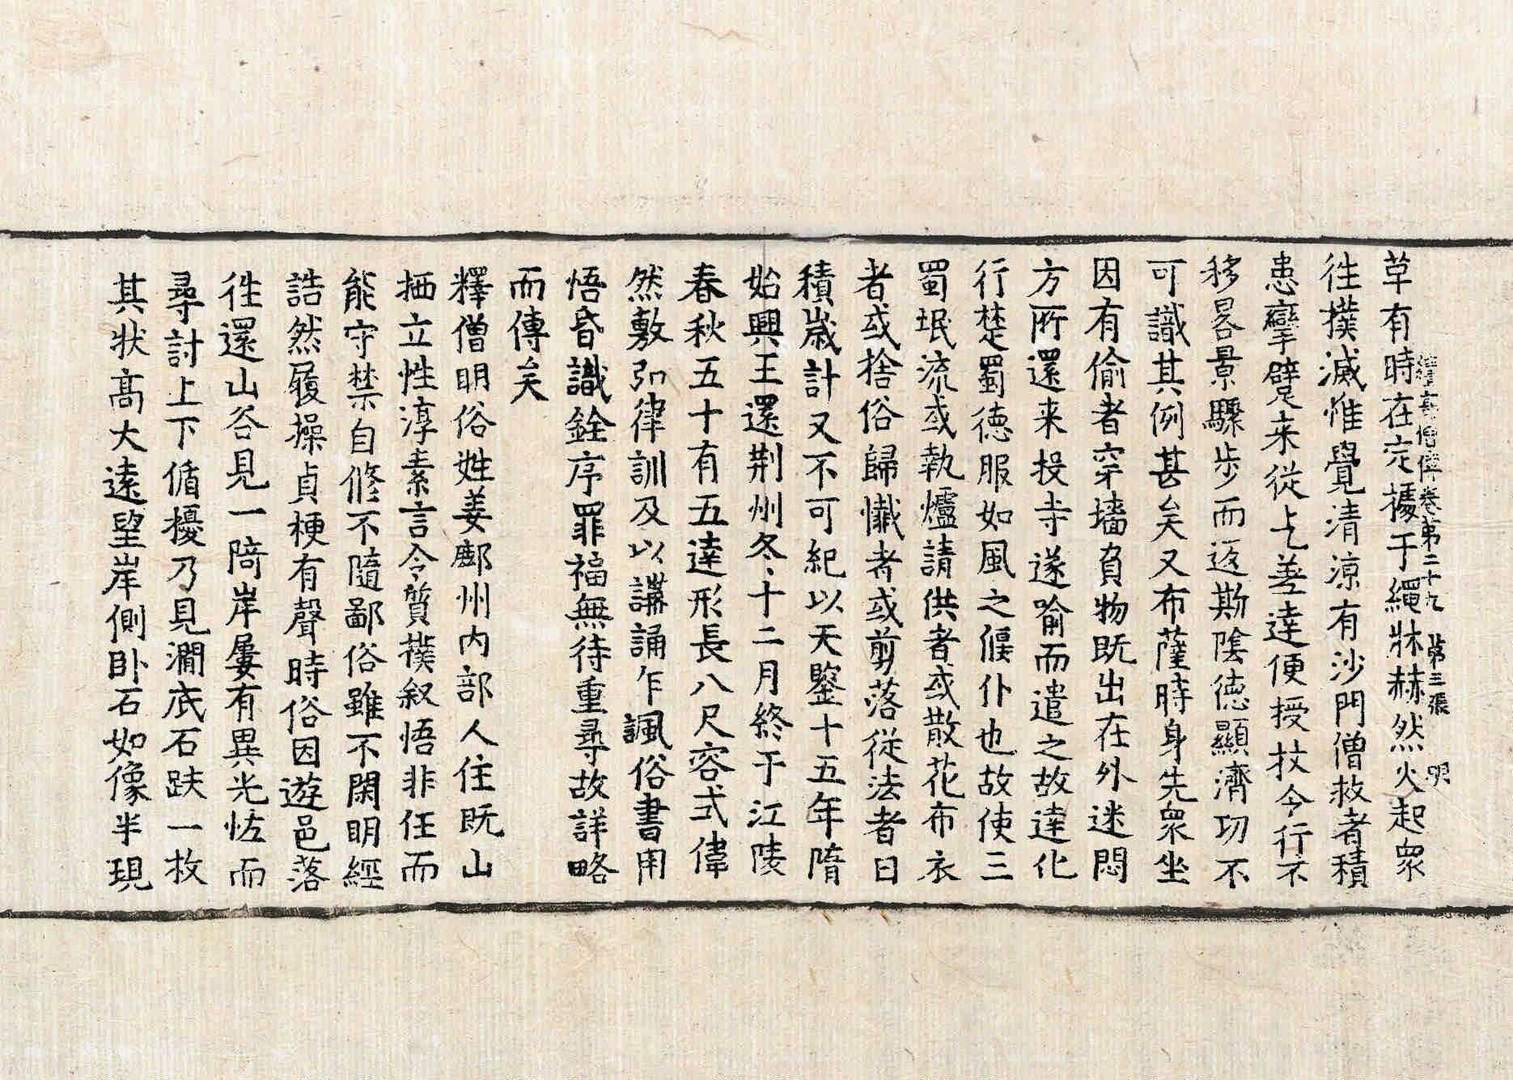 續高僧傳卷第二十九 第三張 明
草有時在定據于繩牀赫然火起衆
往撲滅惟覺清涼有沙門僧救者積
患攣躄来從乞差達便授杖令行不
移晷景驟步而返斯陰德顯濟功不
可識其例甚矣又布薩時身先衆坐
因有偷者穿墻負物既出在外迷悶
方所還来投寺遂喻而遣之故達化
行楚蜀德服如風之偃仆也故使三
蜀氓流或執爐請供者或散花布衣
者或捨俗歸懺者或剪落從法者日
積歲計又不可紀以天鑒十五年隋
始興王還荆州冬十二月終于江陵
春秋五十有五達形長八尺容式偉
然敷弘律訓及以講誦乍諷俗書用
悟昏識銓序罪福無待重尋故詳略
而傳矣
釋僧明俗姓姜鄜州內部人住既山
栖立性淳素言令質撲叙悟非任而
能守禁自修不隨鄙俗雖不閑明經
誥然履操貞梗有聲時俗因遊邑落
往還山谷見一陼岸屢有異光怪而
尋討上下循擾乃見澗底石趺一枚
其狀高大遠望岸側卧石如像半現